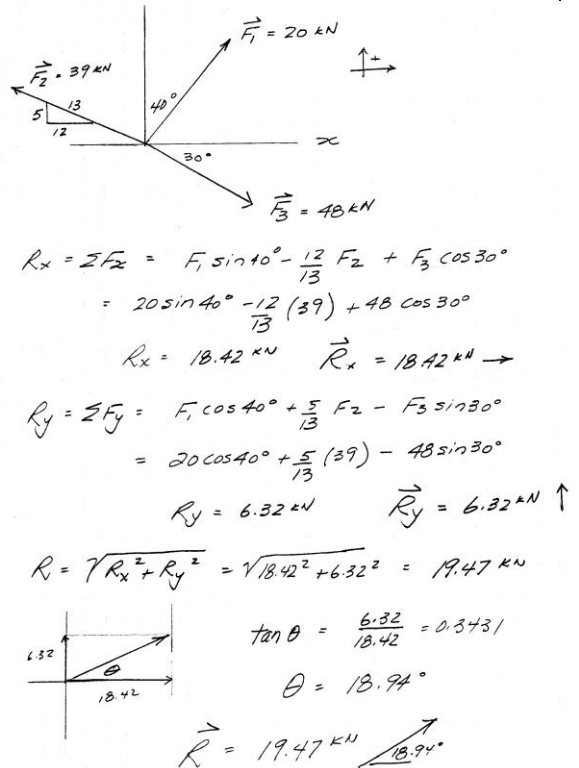 F₁ = 20 kN
+
F₂ = 39 kN
40°
5
13
12
x
30°
F₃ = 48 kN
Rx = ΣFx = F₁ sin40° - 12/13 F₂ + F₃ cos30°
= 20 sin 40° - 12/13 (39) + 48 cos 30°
Rx = 18.42 kN R⃗x = 18.42 kN →
Ry = ΣFy = F₁ cos40° + 5/13 F₂ - F₃ sin30°
= 20 cos40° + 5/13 (39) - 48 sin30°
Ry = 6.32 kN R⃗y = 6.32 kN ↑
R = √Rx² + Ry² = √18.42² + 6.32² = 19.47 kN
6.32
θ
18.42
tan θ = 6.32/18.42 = 0.3431
θ = 18.94°
R⃗ = 19.47 kN 18.94°